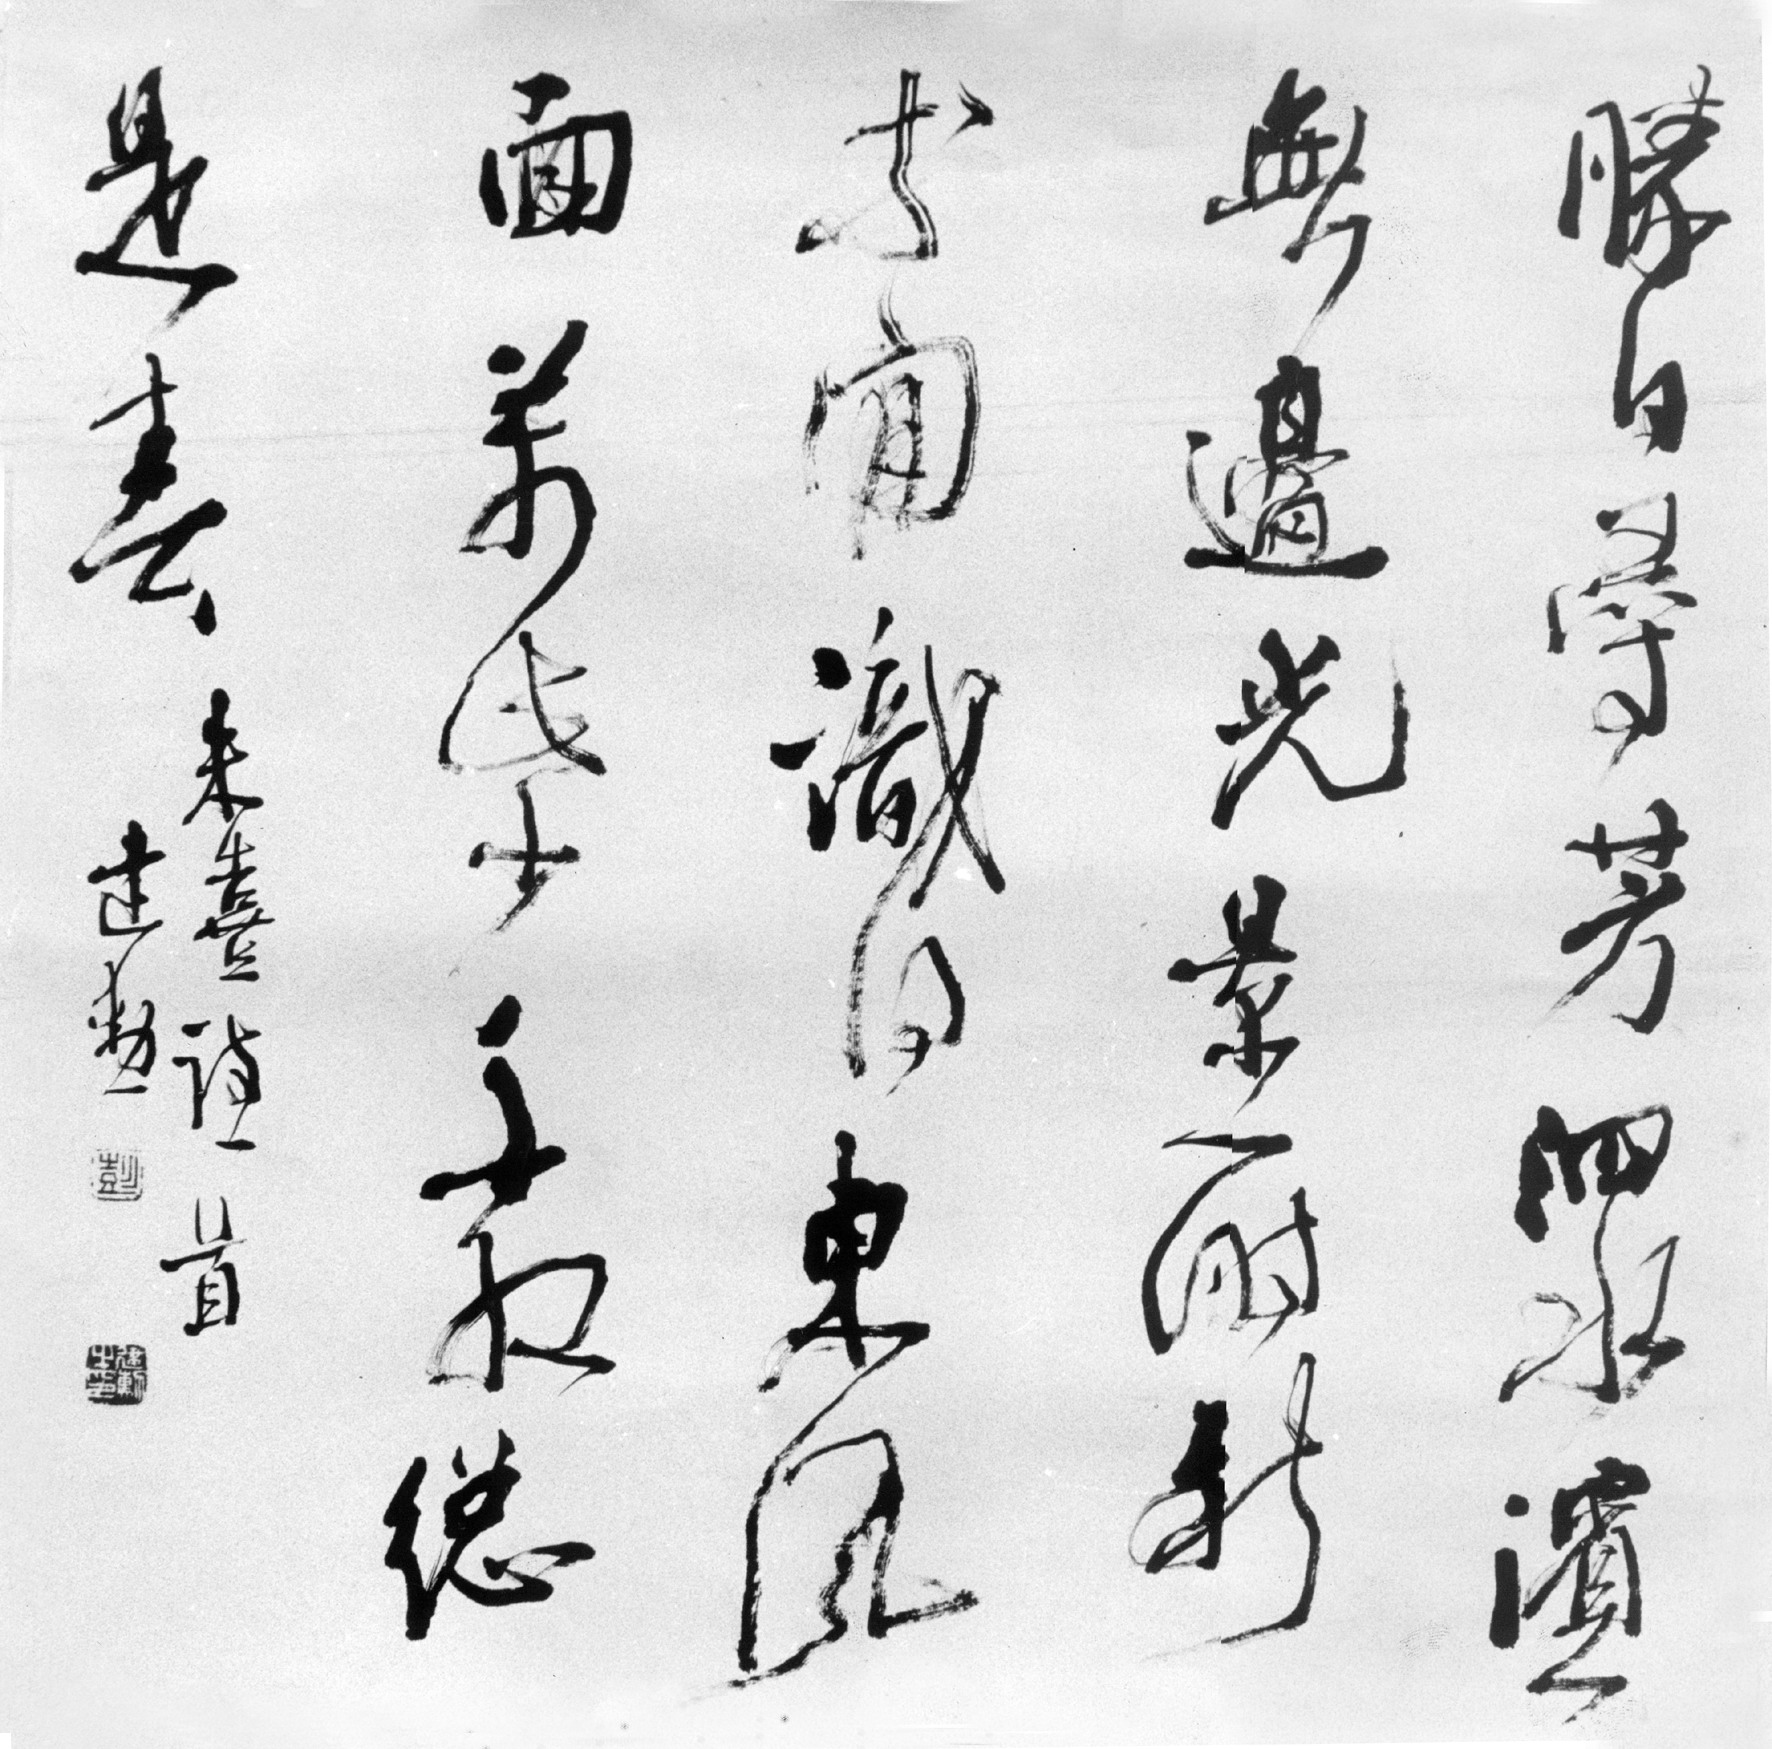 勝日尋芳泗水濱
無邊光景一時新
等閒識得東風
面萬紫千紅總
是春
朱熹詩一首
建勳
彭
建勳之印